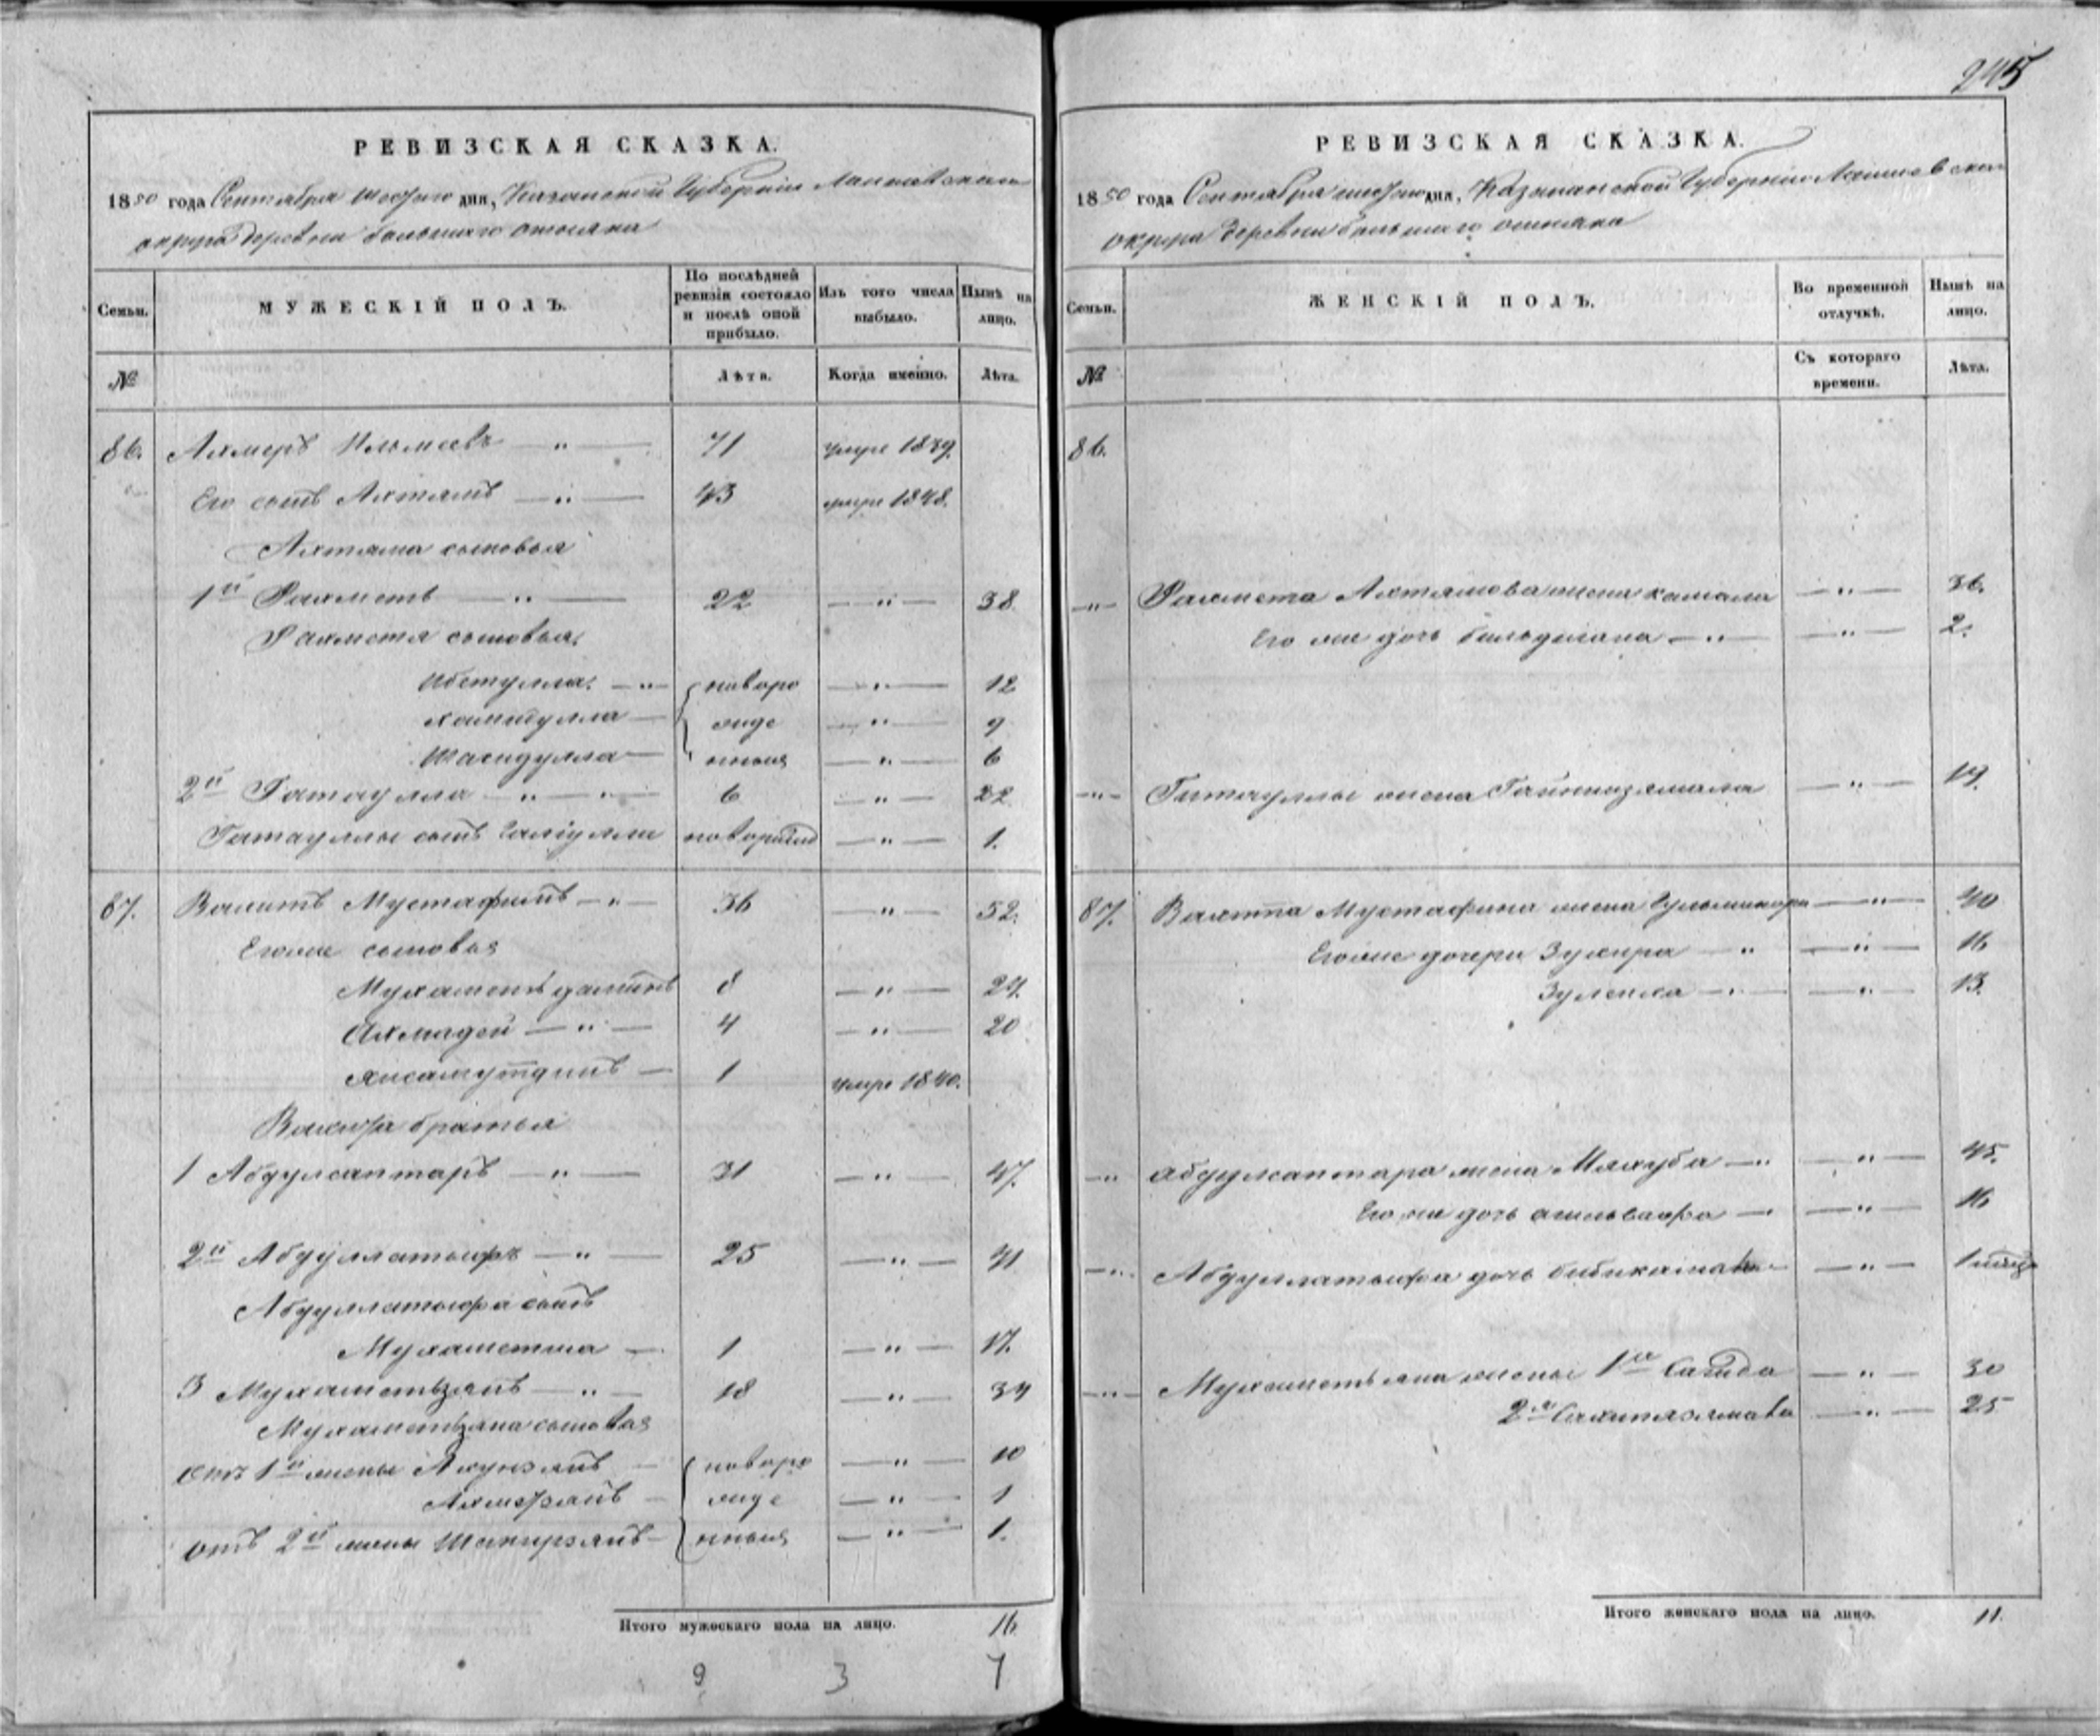 РЕВИЗСКАЯ СКАЗКА.
1850 года Сентября шестаго дня, Казанской Губернии Лаишевскаго
округа деревни большаго ошняка
Семьи.
МУЖЕСКІЙ ПОЛЪ.
По послѣдней ревизіи состояло и послѣ оной прибыло.
Изъ того числа выбыло.
Нынѣ на лицо.
№
Лѣта.
Когда именно.
Лѣта.
86. Ахмеръ — " — 71 умре 1839.
Его сынъ Ахтямъ — " — 43 умре 1848.
Ахтяма сыновья
1й Рахметъ — " — 22 — " — 38
Рахметя сыновья
Ибетулла — " — новоро — " — 12
Хамидулла — жде — " — 9
Шагидулла — нныя — " — 6
2й Гатаулла — " — " — 6 — " — 22
Гатауллы сынъ новорожд — " — 1.
87. Вахитъ Мустафинъ — " — 36 — " — 52.
Егоже сыновья
8 — " — 24.
Ахмадей — " — 4 — " — 20
Хисамутдинъ — 1 умре 1840.
Вахита братья
1 Абдулсаттаръ — " — 31 — " — 47.
2й Абдуллатыфъ — " — 25 — " — 41
Абдуллатыфа сынъ
Мухаметша — 1 — " — 17.
3 Мухаметзянъ — " — 18 — " — 34
Мухаметзяна сыновья
отъ 1й жены Ахунзянъ — новоро — " — 10
Ахметзянъ — жде — " — 1
отъ 2й жены Шакирзянъ — нныя — " — 1.
Итого мужескаго пола на лицо. 16
9 3 7
245
РЕВИЗСКАЯ СКАЗКА.
1850 года Сентября шестаго дня, Казанской Губернии Лаишевскаго
округа деревни большаго ошняка
Семьи.
ЖЕНСКІЙ ПОЛЪ.
Во временной отлучкѣ.
Нынѣ на лицо.
№
Съ котораго времени.
Лѣта.
86.
— " — Рахмета Ахтямова жена камала — " — 36.
Его же дочь — " — — " — 2.
— " — Гатауллы жена Гайнизямала — " — 19.
87. Вахита Мустафина жена — " — 40
Егоже дочери Зухира — " — " — 16
Зулейха — " — — " — 13.
— " — абдулсаттара жена Махуба — " — " — 45.
Его же дочь — " — 16
— " — Абдуллатыфа дочь бибикамал — " — 1
— " — Мухаметьяна жены 1я Сагида — " — 30
2я — " — 25
Итого женскаго пола на лицо. 11.